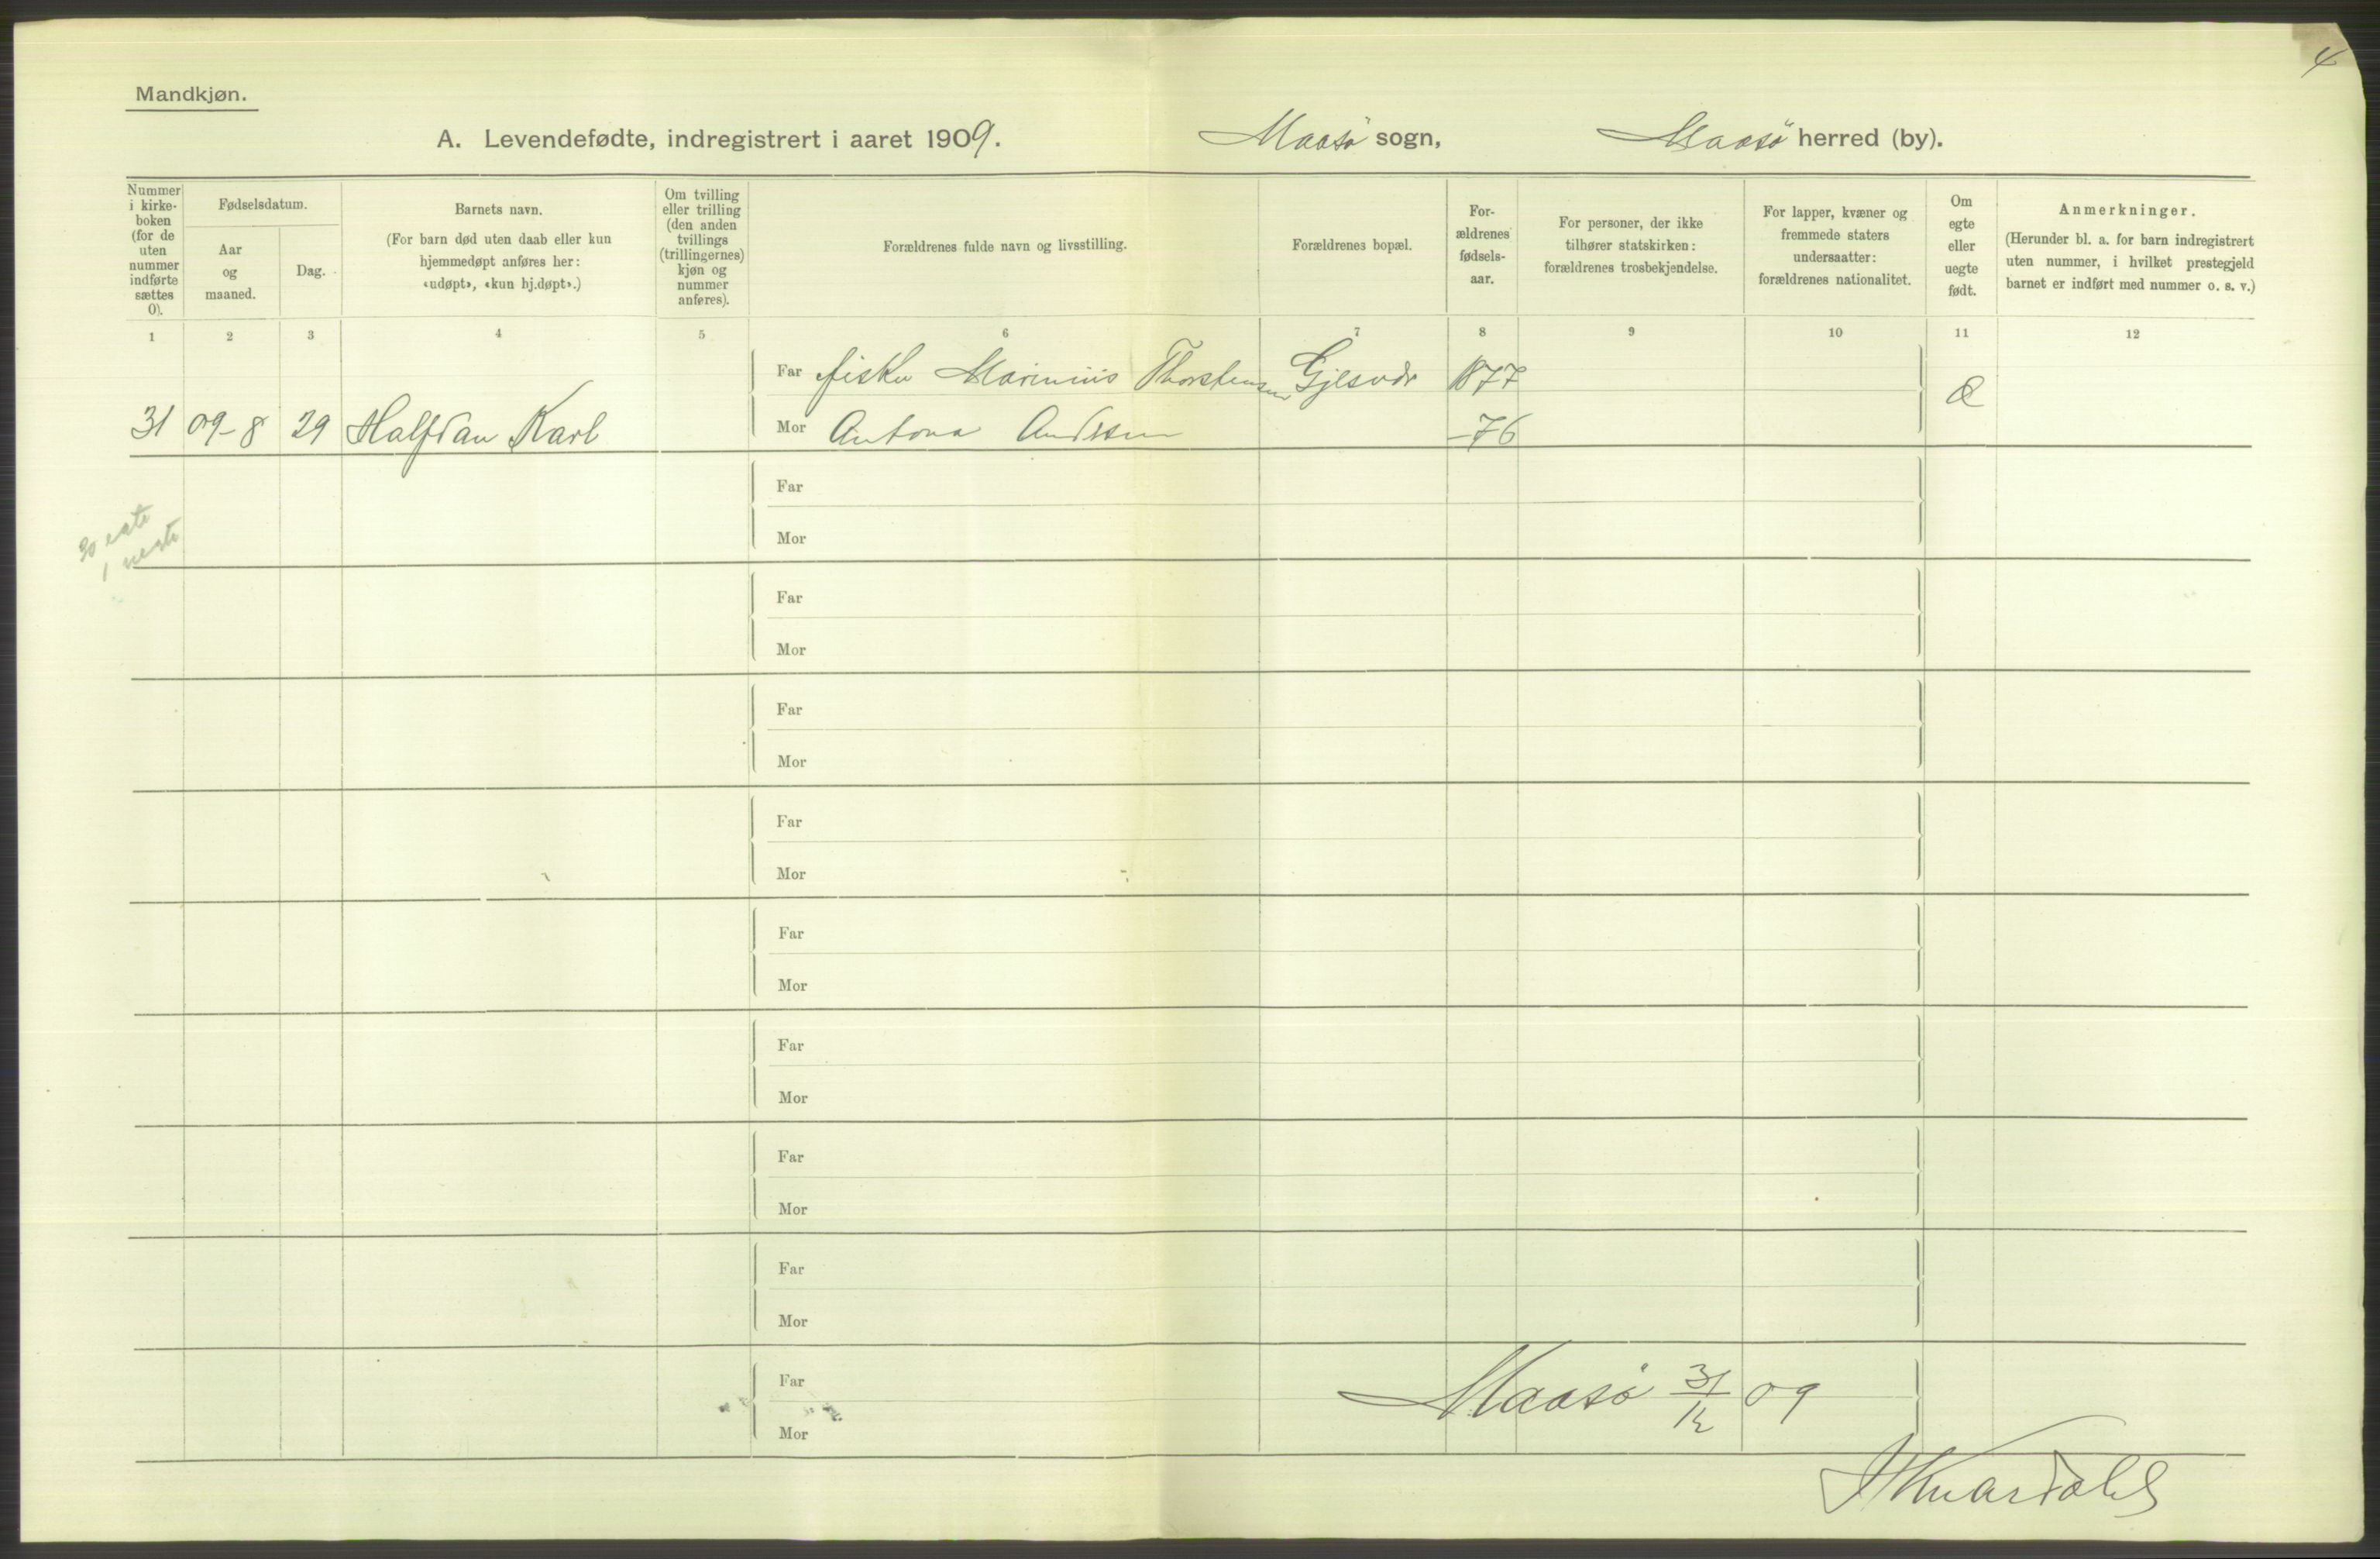 4
Mandkjøn.
A. Levendefødte, indregistrert i aaret 1909. Maasö sogn, Maasö herred (by).
Nummer i kirke-boken (for de uten nummer indførte sættes 0).
Fødselsdatum.
Aar og maaned.
Dag.
Barnets navn.
(For barn død uten daab eller kun hjemmedøpt anføres her: «udøpt», «kun hj.døpt».)
Om tvilling eller trilling (den anden tvillings (trillingernes) kjøn og nummer anføres).
Forældrenes fulde navn og livsstilling.
Forældrenes bopæl.
For-ældrenes fødsels-aar.
For personer, der ikke tilhører statskirken: forældrenes trosbekjendelse.
For lapper, kvæner og fremmede staters undersaatter: forældrenes nationalitet.
Om egte eller uegte født.
Anmerkninger.
(Herunder bl. a. for barn indregistrert uten nummer, i hvilket prestegjeld barnet er indført med nummer o. s. v.)
1 2 3 4 5 6 7 8 9 10 11 12
Far fisker Marinius Thorstensen Gjesvær 1877
31 09-8 29 Halfdan Karl Mor Antona Andersen -76 Æ
Far
Mor
30 egte
1 uegte
Far
Mor
Far
Mor
Far
Mor
Far
Mor
Far
Mor
Far
Mor
Far
Mor
Far
Mor
Maasö 31/12 09